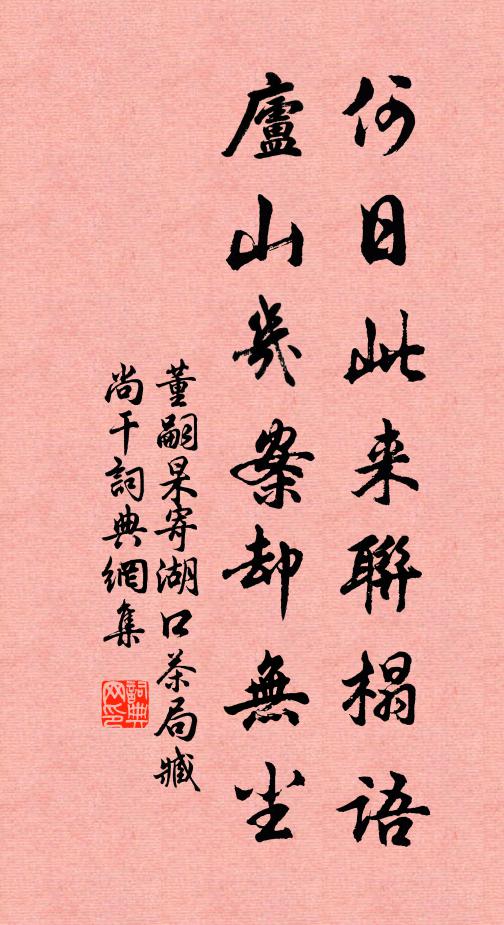 何日此来聯榻語
廬山几案却無尘
董嗣杲寄湖口茶局臧
尚干詞典網集
詞典网印